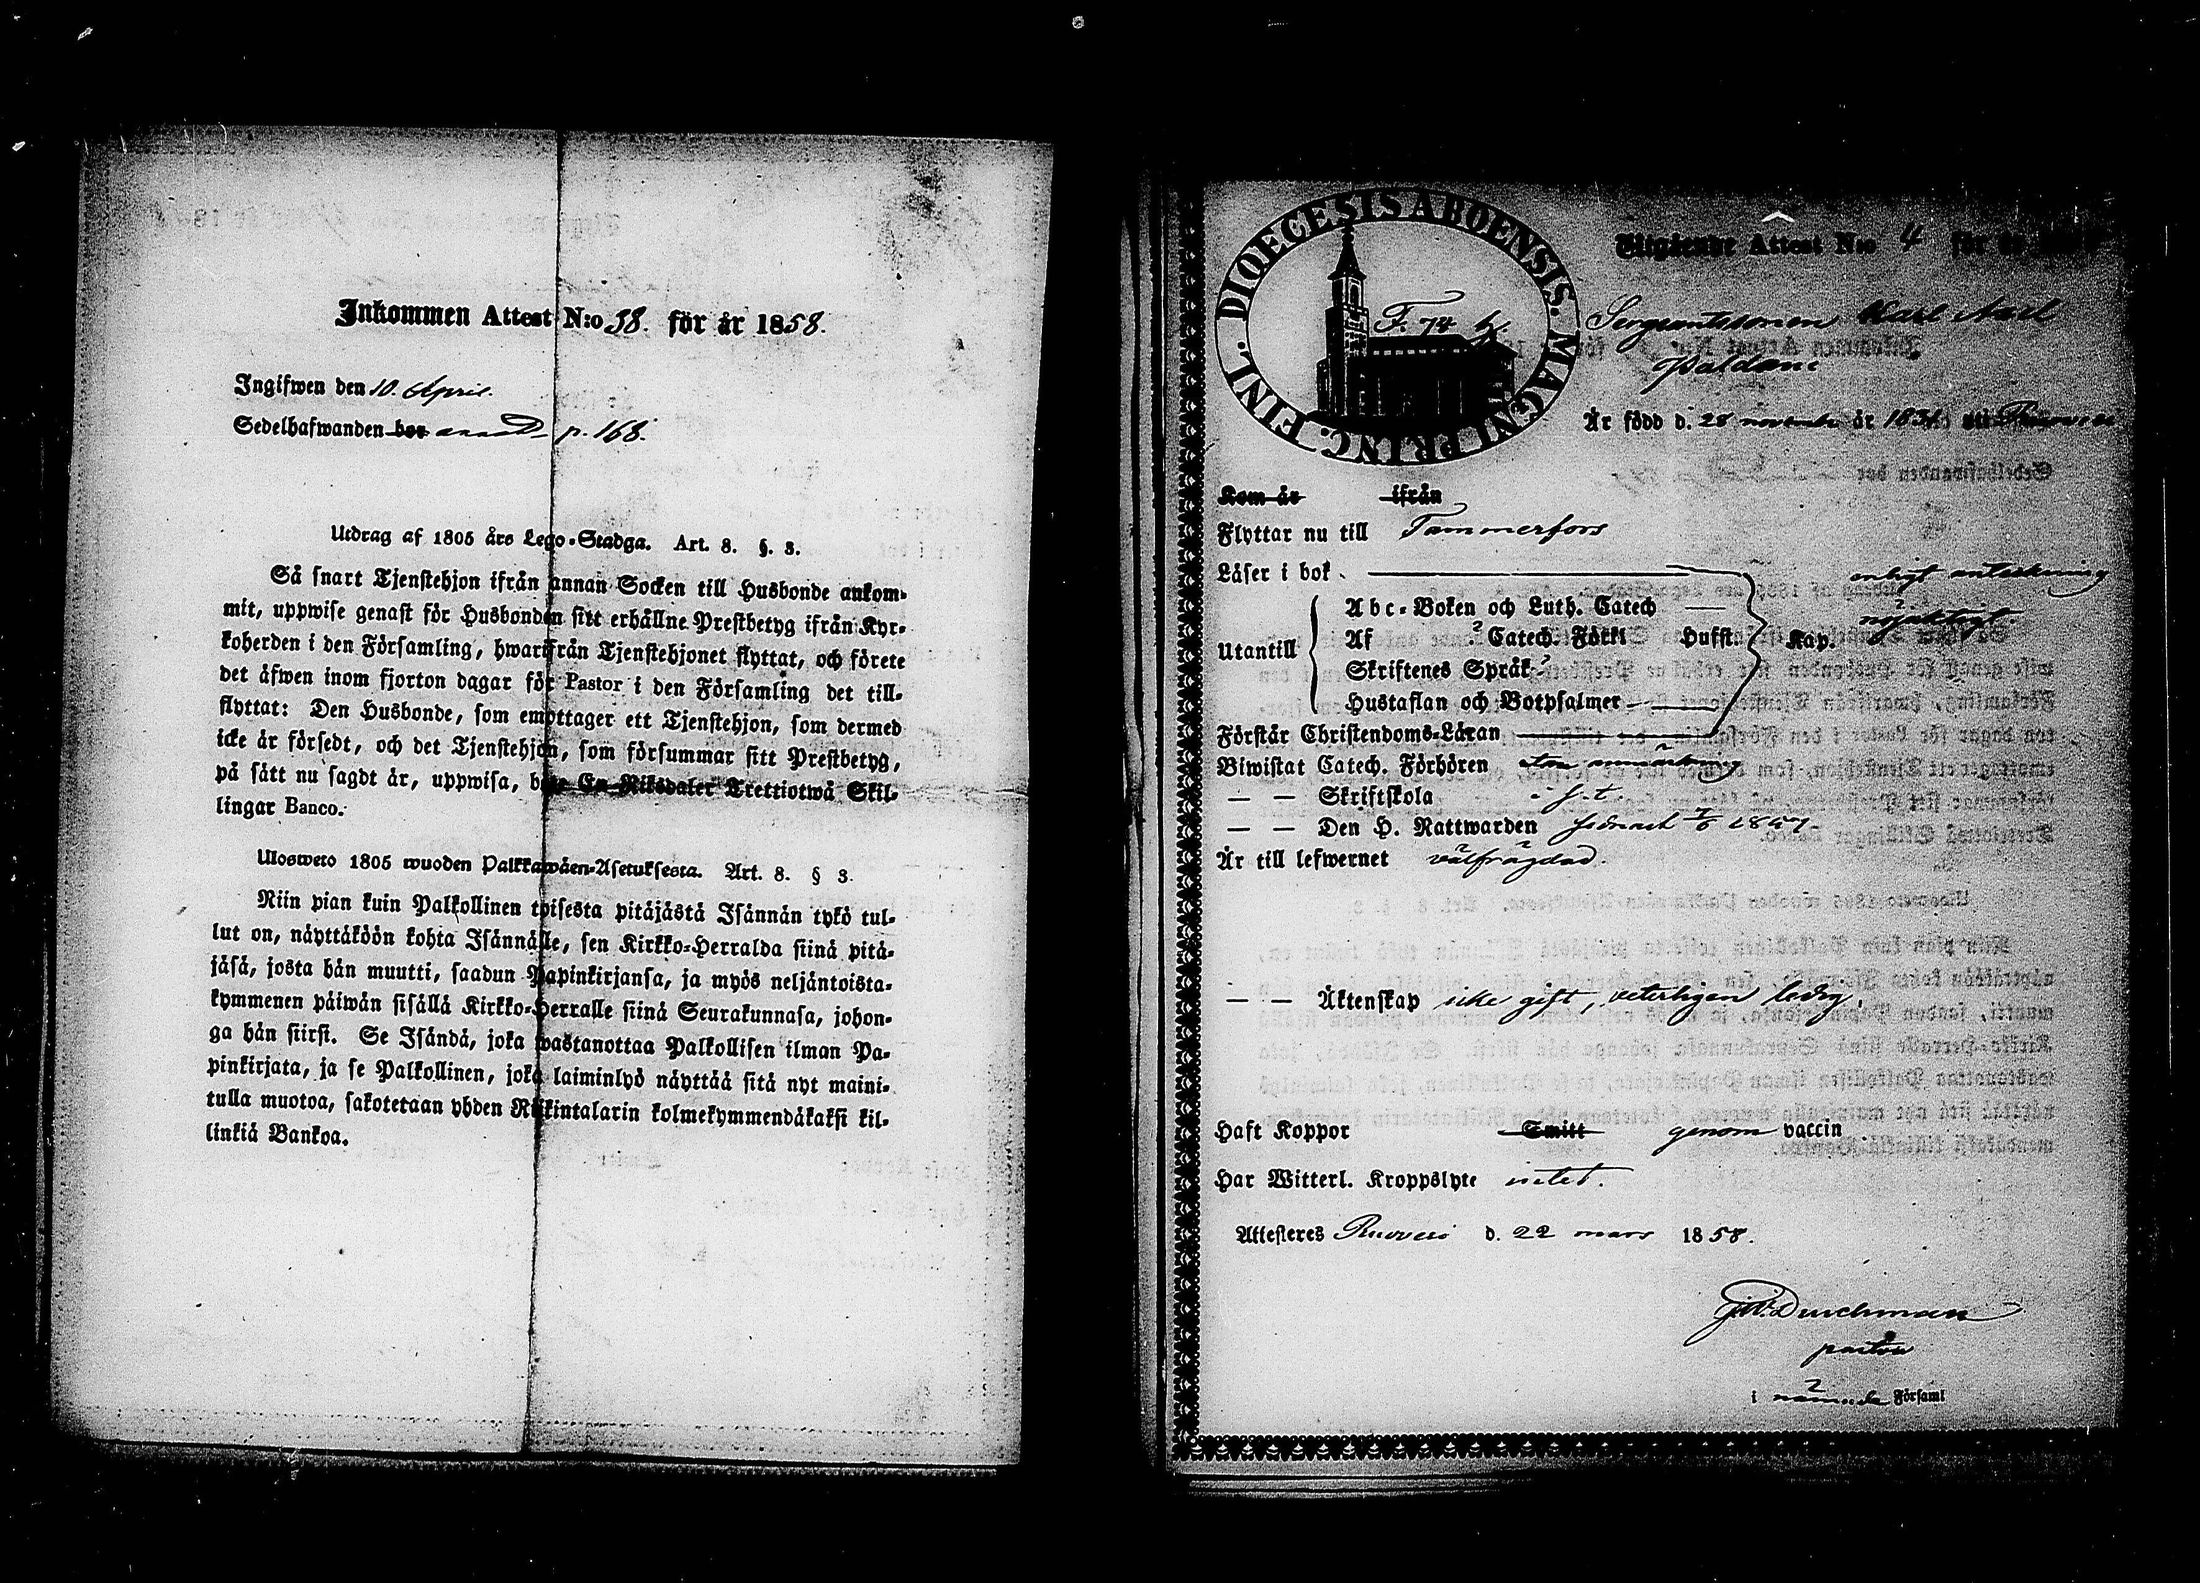 Inkommen Attest N:o 38. för år 1858.
Ingifwen den 10. April.
Sedelhafwanden bor p. 168.
Utdrag af 1805 års Lego-Stadga. Art. 8. §. 3.
Så snart Tjenstehjon ifrån annan Socken till Husbonde ankom-
mit, uppwise genast för Husbonden sitt erhållne Prestbetyg ifrån Kyr-
koherden i den Församling, hwarifrån Tjenstehjonet flyttat, och förete
det äfwen inom fjorton dagar för Pastor i den Församling det till-
flyttat: Den Husbonde, som emottager ett Tjenstehjon, som dermed
icke är försedt, och det Tjenstehjon, som försummar sitt Prestbetyg,
på sätt nu sagdt är, uppwisa, böte En Riksdaler Trettiotwå Skil-
lingar Banco.
Ulosweto 1805 wuoden Palkkawäen-Asetuksesta. Art. 8. § 3.
Niin pian kuin Palkollinen toisesta pitäjästä Isännän tykö tul-
lut on, näyttäköön kohta Isännälle, sen Kirkko-Herralda siinä pitä-
jäsä, josta hän muutti, saadun Papinkirjansa, ja myös neljäntoista-
kymmenen päiwän sisällä Kirkko-Herralle siinä Seurakunnasa, johon-
ga hän siirsi. Se Isändä, joka wastanottaa Palkollisen ilman Pa-
pinkirjata, ja se Palkollinen, joka laiminlyö näyttää sitä nyt maini-
tulla muotoa, sakotetaan yhden Riikintalarin kolmekymmendäkaksi kil-
linkiä Bankoa.
FINL. DIOECESIS ABOENSIS. MAGNI PRINC.
F. 74
Utgående Attest N:o 4 för år
Sergeantssonen Karl Axel
Paldani
Är född d. 28 november år 1834 uti Ruovesi
Kom år ifrån
Flyttar nu till Tammerfors
Läser i bok
enligt anteckning
nöjaktigt.
Utantill
Abc-Boken och Luth. Catech
Af Catech. Förkl Hufst. Kap.
Skriftenes Språk
Hustaflan och Botpsalmer
Förstår Christendoms-Läran
Biwistat Catech. Förhören utan anmärkning
— — Skriftskola
— — Den H. Nattwarden sednast 7/6 1857
Är till lefwernet välfrägdad.
— — Äktenskap icke gift, veterligen ledig.
Haft Koppor Smitt genom vaccin
Har Witterl. Kroppslyte intet.
Attesteres Ruovesi d. 22 mars 1858.
Durchman
pastor
i nämnde Församl